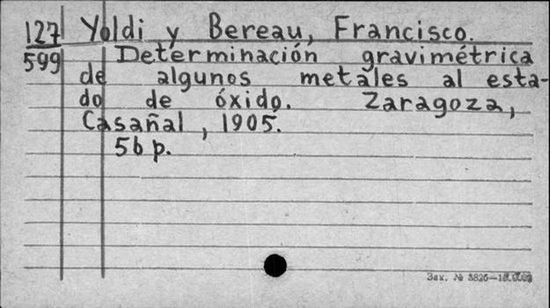 127 Yoldi y Bereau, Francisco.
599 Determinación gravimétrica
de algunos metales al esta-
do de óxido. Zaragoza,
Casañal, 1905.
56 p.
Зак. № 3825—